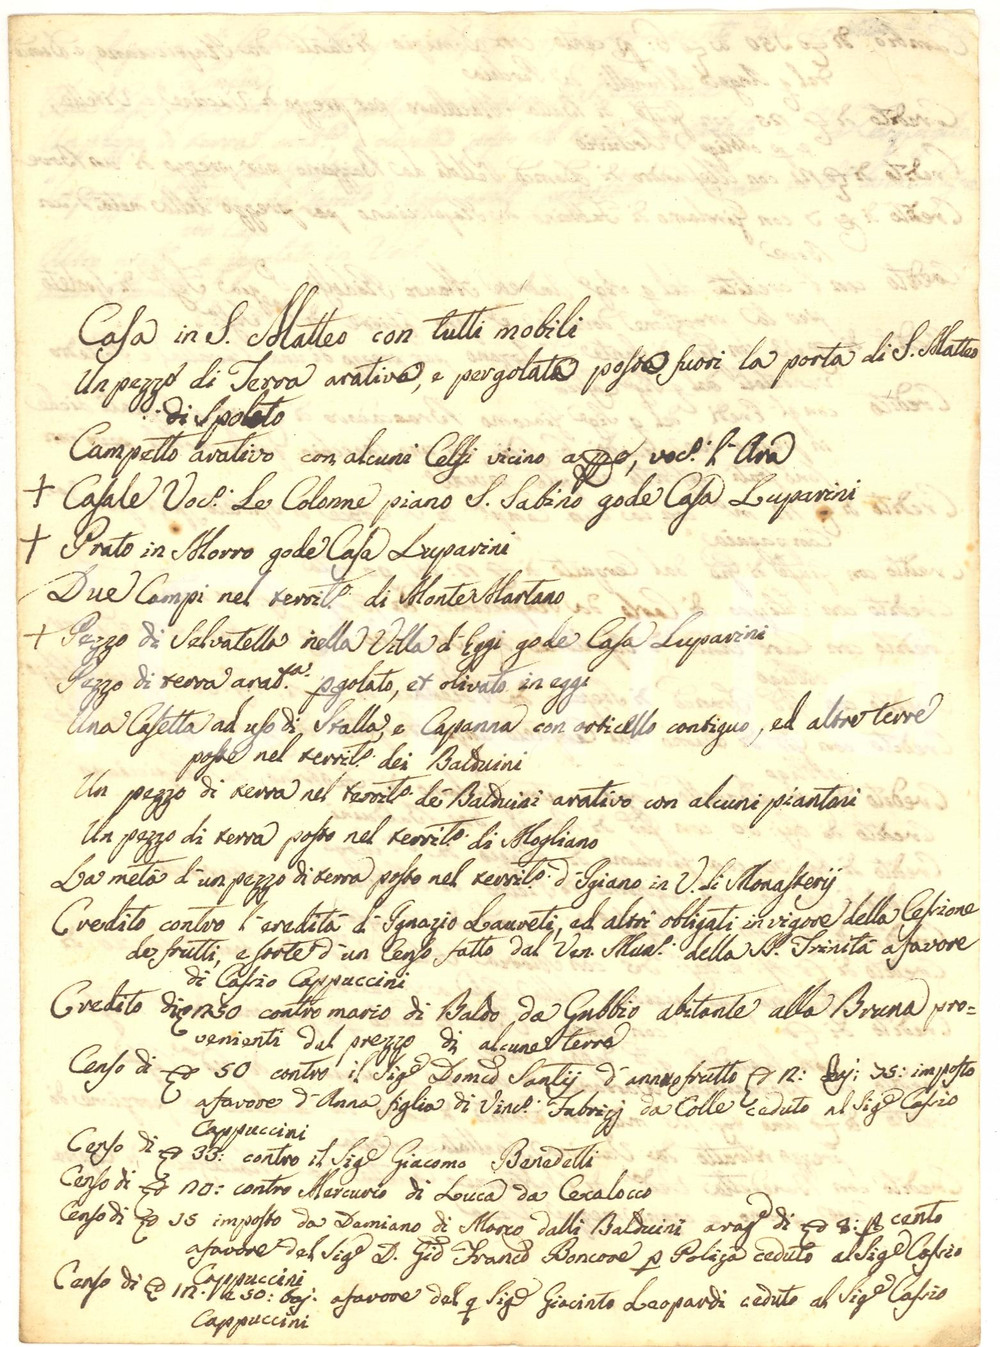 Casa in S. Matteo con tutti mobili
Un pezzo di Terra arativa, e pergolata posta fuori la porta di S. Matteo
di Spoleto
Campetto arativo con alcuni Celsi vicino a , voc.° l'Ara
† Casale Voc.° Le Colonne piano S. Sabino gode Casa Luparini
† Prato in Morro gode Casa Luparini
Due Campi nel territ.° di Monte Martano
† Pezzo di Selvatella nella Villa d'Eggi gode Casa Luparini
Pezzo di terra arat.va pgolato, et olivato in eggi
Una Casetta ad uso di Stalla, e Capanna con orticello contiguo, ed altre terre
poste nel territ.° dei Balduini
Un pezzo di terra nel territ.° dei Balduini arativo con alcuni piantoni
Un pezzo di terra posto nel territ.° di Mogliano
La metà d'un pezzo di terra posto nel territ.° d'Igiano in V. di Monasterij
Credito contro l'eredità d'Ignazio Laureti, ed altri obligati in vigore della Cessione
de frutti, e sorte d'un Censo fatto dal Ven. Mon.° della SS. Trinità a favore
di Cassio Cappuccini
Credito di 1250 contro mario di Baldo da Gubbio abitante alla Bruna pro=
venienti dal prezzo di alcune terra
Censo di 50 contro il Sig.e Dom.co Santij d'annuo frutto 12: baj: 75: imposto
a favore d'Anna figlia di Vinc.° Fabrizj da Colle ceduto al Sig.e Cassio
Cappuccini
Censo di 33: contro il Sig.e Giacomo Benedetti
Censo di 120: contro Mercurio di Luca da Cecalocco
Censo di 75 imposto da Damiano di Marco dalli Balduini a rag.e di 8: p cento
a favore del Sig.e D. Gio: Fran.co Boncore p Poliza ceduto al Sig.e Cassio
Cappuccini
Censo di 112: 50: baj. a favore del q Sig.e Giacinto Leopardi ceduto al Sig.e Cassio
Cappuccini